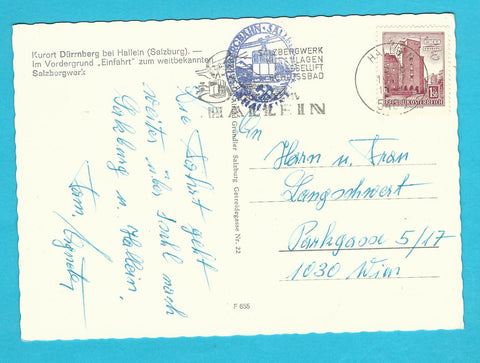 Kurort Dürrnberg bei Hallein (Salzburg). —
Im Vordergrund „Einfahrt" zum weitbekannten
Salzbergwerk
SALZBERGWERK
HALLEIN
HALLEIN
REPUBLIK ÖSTERREICH
Gründler Salzburg Getreidegasse Nr. 22
F 655
Die Fahrt geht
weiter über Ischl nach
Salzburg u. Hallein.
An
Herrn u. Frau
Langschwert
Parkgasse 5/17
1030 Wien